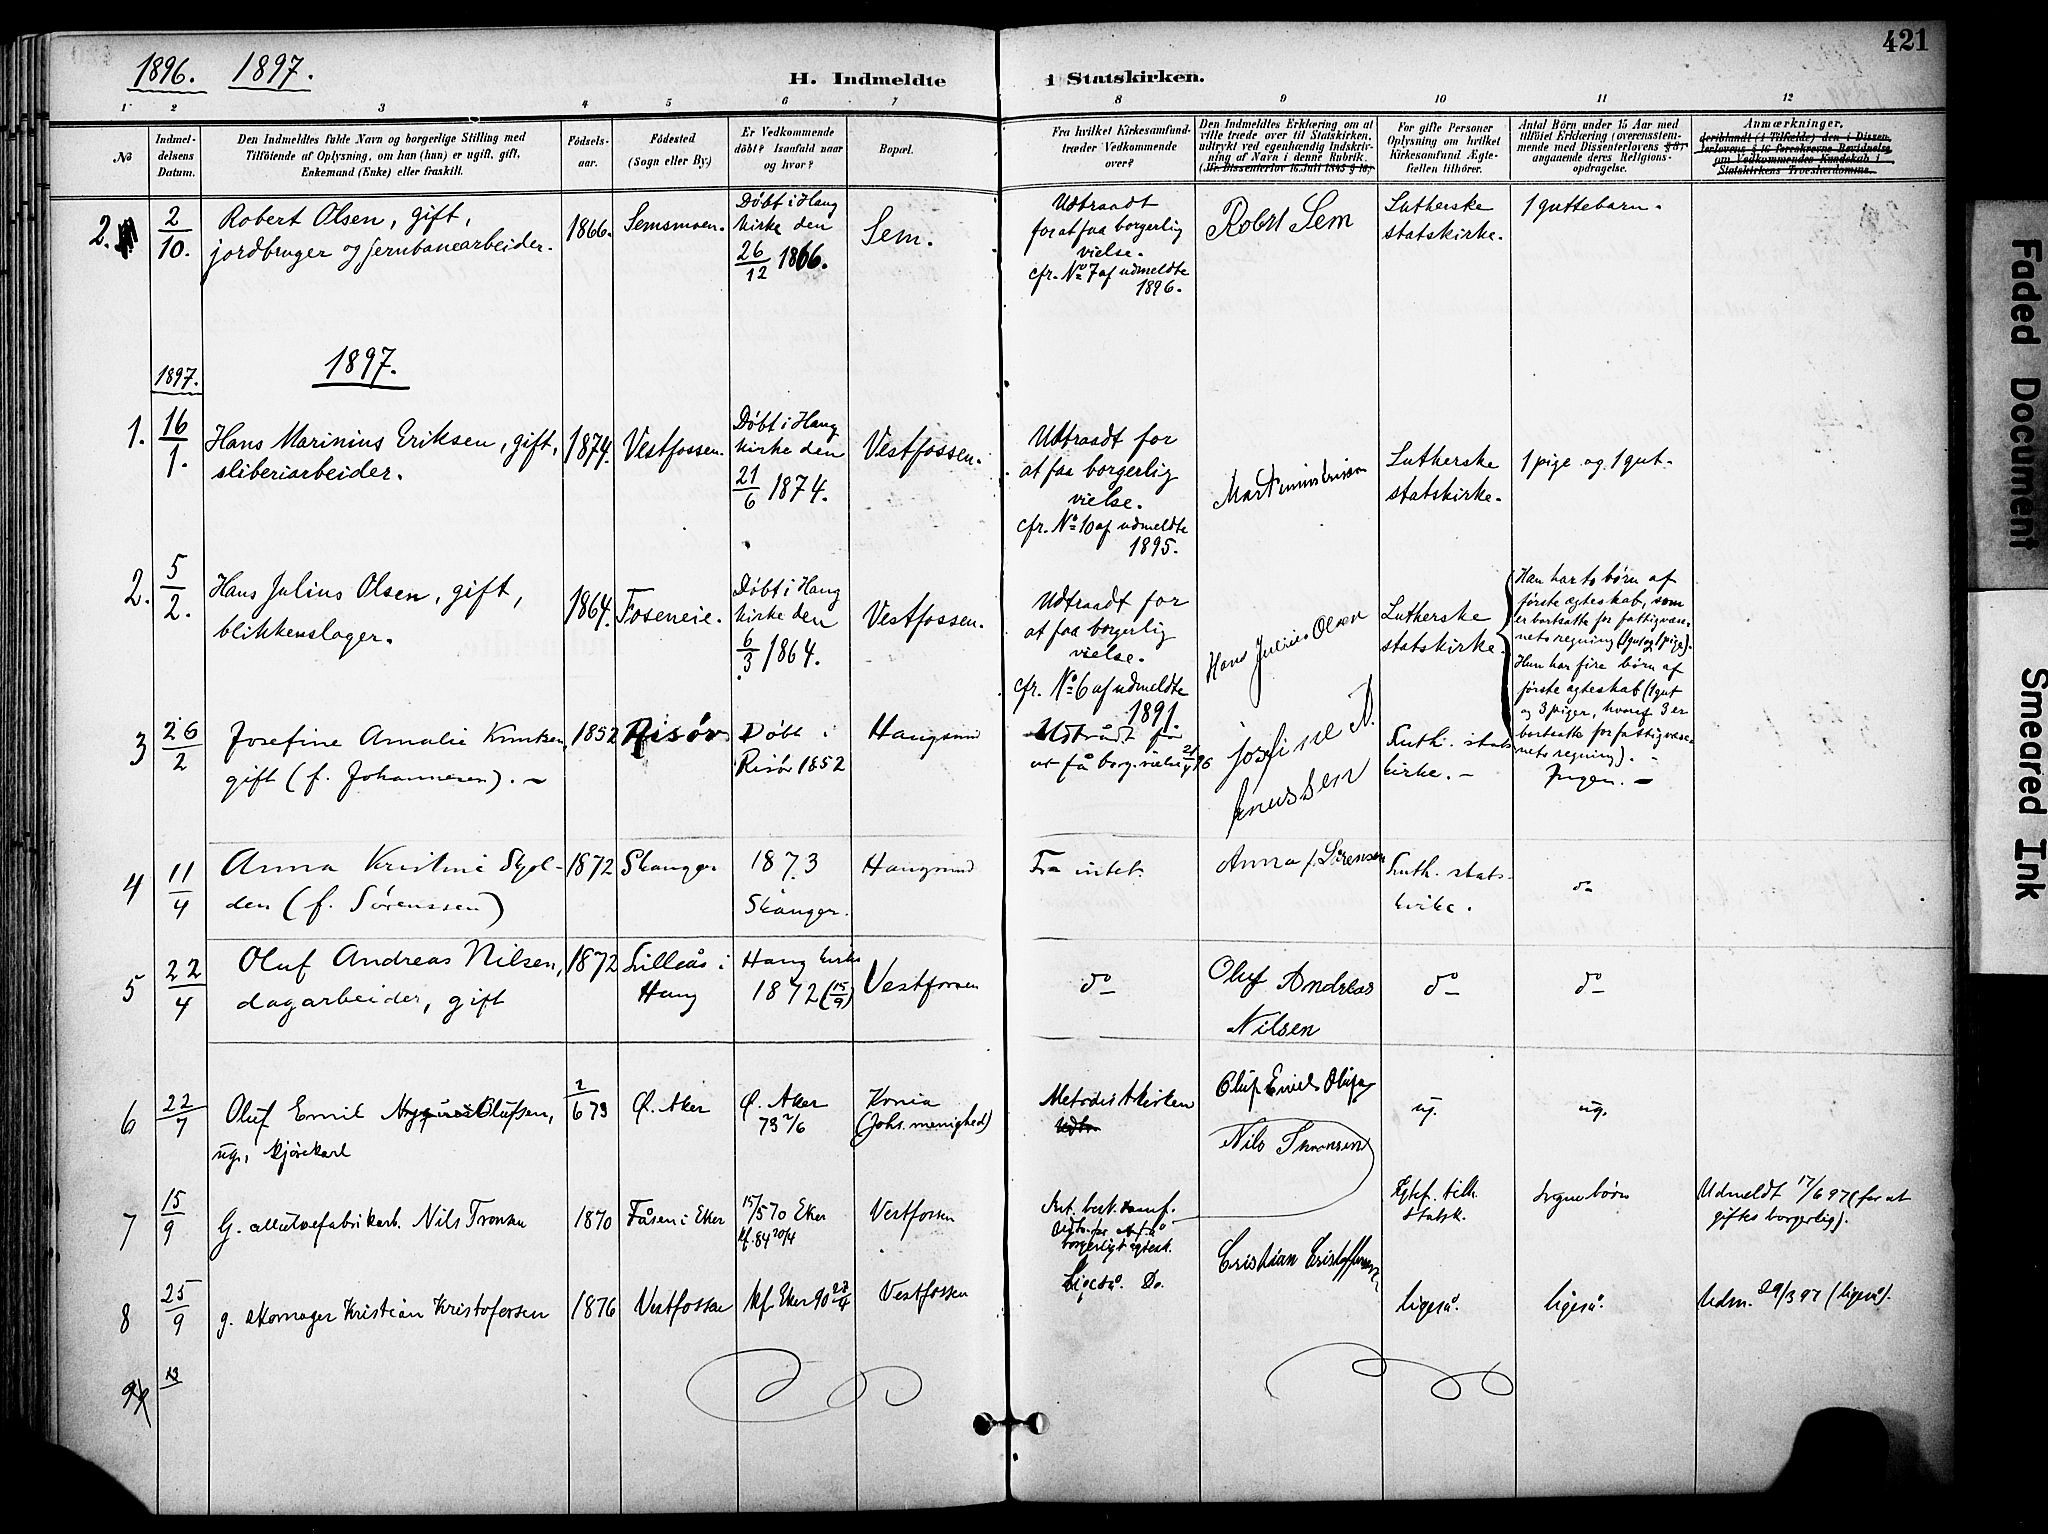 421
1896. 1897.
H. Indmeldte i Statskirken.
1 2 3 4 5 6 7 8 9 10 11 12
No
Indmel-
delsens
Datum.
Den Indmeldtes fulde Navn og borgerlige Stilling med
Tilføiende af Oplysning, om han (hun) er ugift, gift,
Enkemand (Enke) eller fraskilt.
Fødsels-
aar.
Fødested
(Sogn eller By.)
Er Vedkommende
døbt? Isaafald naar
og hvor?
Bopæl.
Fra hvilket Kirkesamfund-
træder Vedkommende
over?
Den Indmeldtes Erklæring om at
ville træde over til Statskirken,
udtrykt ved egenhændig Indskriv-
ning af Navn i denne Rubrik.
(Jfr. Dissenterlov 16 Juli 1845 § 16,
For gifte Personer
Oplysning om hvilket
Kirkesamfund Ægte-
fællen tilhører.
Antal Børn under 15 Aar med
tilføiet Erklæring (overensstem-
mende med Dissenterlovens § 8)
angaaende deres Religions-
opdragelse.
Anmærkninger,
deriblandt (i Tilfælde) den i Dissen-
terlovens § 16 foreskrevne Bevidnelse
om Vedkommendes Kundskab i
Statskirkens Troeslærdomme.
2.
2/10.
Robert Olsen, gift,
jordbruger og jernbanearbeider.
1866.
Semsmoen.
Døbt i Haug
kirke den
26/12 1866.
Sem.
Udtraadt
for at faa borgerlig
vielse.
cfr. No 7 af udmeldte
1896.
Robert Sem
Lutherske
statskirke.
1 guttebarn.
1897.
1897.
1.
16/1.
Hans Marinius Eriksen, gift,
sliberiarbeider.
1874.
Vestfossen.
Døbt i Haug
kirke den
21/6 1874.
Vestfossen.
Udtraadt for
at faa borgerlig
vielse.
cfr. No 10 af udmeldte
1895.
Lutherske
statskirke.
1 pige og 1 gut.
2.
5/2.
Hans Julius Olsen, gift,
blikkenslager.
1864.
Foseneie.
Døbt i Haug
kirke den
6/3 1864.
Vestfossen.
Udtraadt for
at faa borgerlig
vielse.
cfr. No 6 af udmeldte
1891.
Hans Julius Olsen
Lutherske
statskirke.
Han har to børn af
første ægteskab, som
er bortsatte for fattigvæse-
nets regning (1 gut og 1 pige).
Hun har fire børn af
første ægteskab (1 gut
og 3 piger, hvoraf 3 er
bortsatte for fattigvæse-
nets regning).
3
26/2
Josefine Amalie Knutsen,
gift (f. Johannesen). –
1852
Risør
Døbt i
Risør 1852
Haugsund
Udtrådt for
at få borg. vielse 21/4 96
Josefine A.
knussen
Luth. stats
kirke. –
Ingen. –
4
11/4
Anna Kristine Skjol-
den (f. Sørenssen)
1872
Skanger
1873
Skanger.
Haugsund
Fra intet.
Anna f. Sørensen
Luth. stats-
kirke.
do
5
22/4
Oluf Andreas Nilsen,
dagarbeider, gift
1872
Lilleås i
Haug
Haug kirke
1872 (15/9)
Vestfossen
do
Oluf Andreas
Nilsen
do
do
6
22/7
Oluf Emil Olufsen,
ug., kjørekarl
2/6 73
Ø. Aker
Ø. Aker
73 2/6
Krnia
(Johs. menighed)
Metodistkirken
Udtr.
Oluf Emil Olufsen
ug.
ug.
7
15/9
G. cellulosefabrikarb. Nils Tronsen
1870
Fåsen i Eker
15/5 70 Eker
kf. 84 20/4
Vestfossen
Int. best. samf.
Udtr. for at få
borgerligt egtesk.
Nils Thronsen
Egtef. tilh.
statsk.
Ingen børn
Udmeldt 17/6 97 (for at
giftes borgerlig).
8
25/9
g. skomager Kristian Kristofersen
1876
Vestfossen
kf. Eker 90 27/4
Vestfossen
Ligeså. Do.
Cristian Cristoffersen
ligeså.
ligeså.
Udm. 29/3 97 (ligeså).
9
13
Faded Document
Smeared Ink